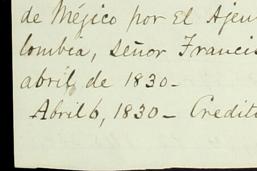 de Méjico por El Ajen
lombia, Señor Francis
abril, de 1830-
Abril 6, 1830 - Credit